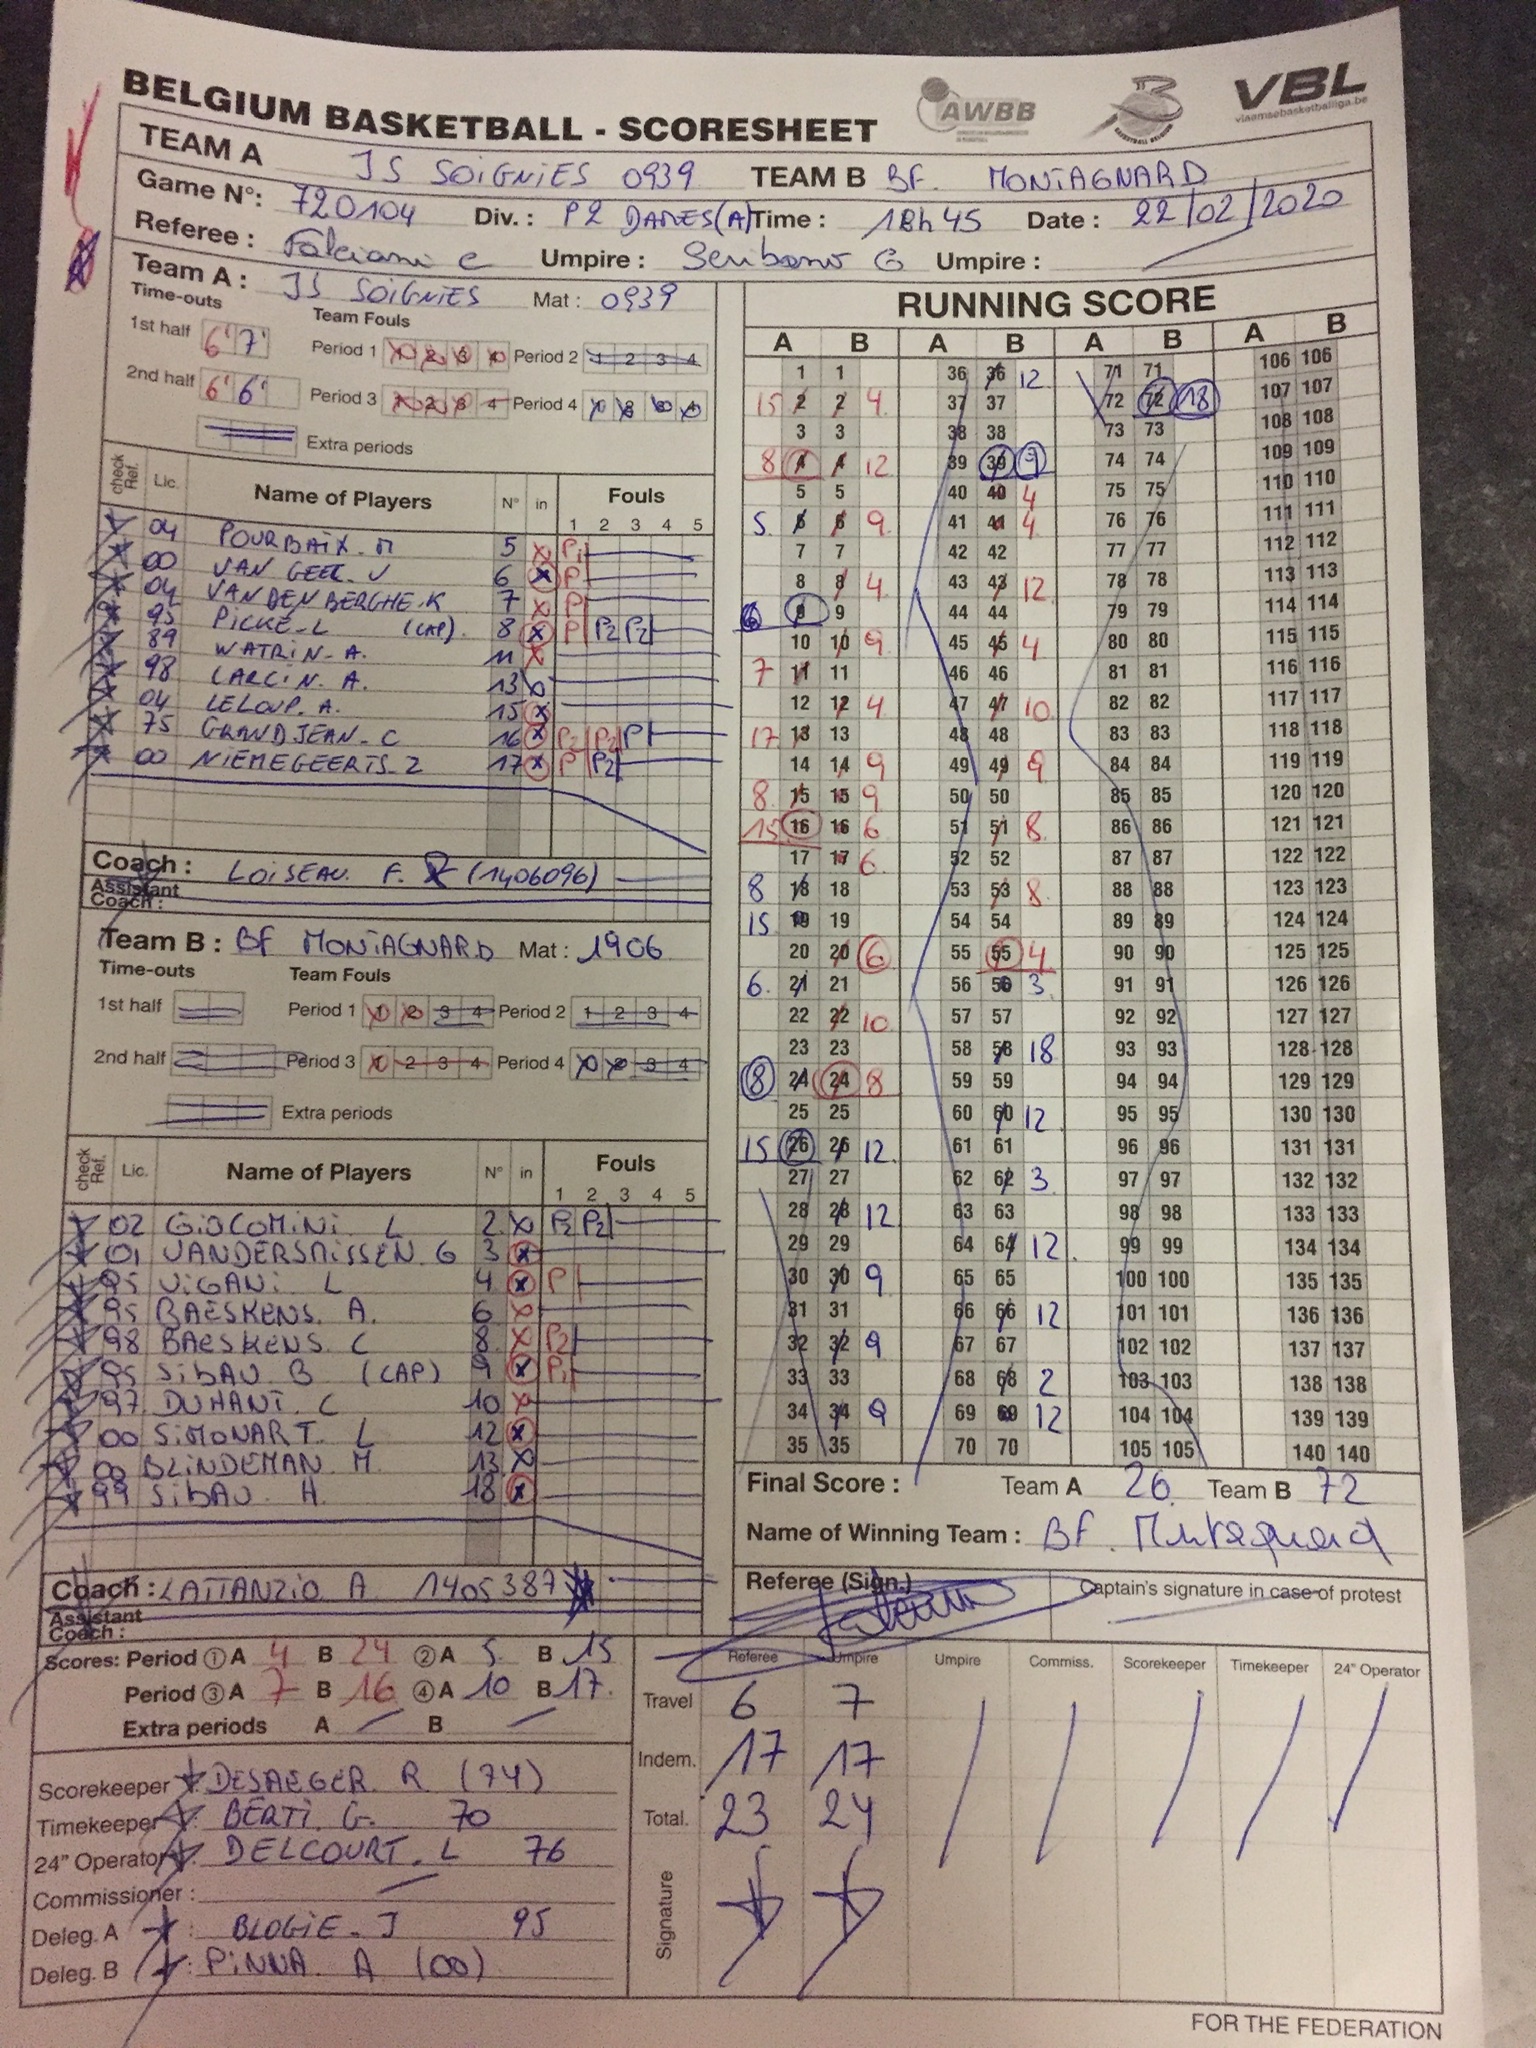 BELGIUM BASKETBALL - SCORESHEET
AWBB
VBL
vlaamsebasketballiga.be
TEAM A JS SOIGNIES 0939 TEAM B BF. MONTAGNARD
Game N°: 720104 Div. : P2 DAMES(A) Time : 18h45 Date : 22/02/2020
Referee : Umpire : Umpire :
Team A : JS SOIGNIES Mat : 0939
Time-outs Team Fouls
1st half 6' 7' Period 1 1 2 3 4 Period 2 1 2 3 4
2nd half 6' 6' Period 3 1 2 3 4 Period 4
Extra periods
check Ref. Lic. Name of Players N° in Fouls
1 2 3 4 5
04 POURBAIX. M 5 P1
00 VAN GEEL. V 6 P
04 VANDENBERGHE. K 7 P
95 PICKE. L (CAP). 8 P P2 P2
89 WATRIN. A. 11
98 LARCIN. A. 13
04 LELOUP. A. 15
75 GRANDJEAN. C 16 P2 P2 P
00 NIEMEGEERTS. Z 17 P P2
Coach : LOISEAU. F. (1406096)
Assistant Coach :
Team B : BF MONTAGNARD Mat : 1906
Time-outs Team Fouls
1st half Period 1 1 2 3 4 Period 2 1 2 3 4
2nd half Period 3 1 2 3 4 Period 4 3 4
Extra periods
check Ref. Lic. Name of Players N° in Fouls
1 2 3 4 5
02 GIOCOMINI. L 2 P2 P2
01 VANDERSMISSEN. G 3
95 VIGANI. L 4 P
95 BAESKENS. A. 6
98 BAESKENS. C 8 P2
95 SIBAU. B (CAP) 9 P1
97 DUHANT. C 10
00 SIMONART. L 12
00 BLINDEMAN. M. 13
99 SIBAU. H. 18
Coach : LATTANZIO A. 1405387
Assistant Coach :
Scores: Period ① A 4 B 24 ② A 5 B 15
Period ③ A 7 B 16 ④ A 10 B 17
Extra periods A B
Scorekeeper : DESAEGER. R (74)
Timekeeper : BERTI. G. 70
24" Operator : DELCOURT. L 76
Commissioner :
Deleg. A : BLOGIE. J 95
Deleg. B : PINNA. A (00)
RUNNING SCORE
A B A B A B A B
1 1 36 36 12 71 71 106 106
15 2 2 4 37 37 72 72 18 107 107
3 3 38 38 73 73 108 108
8 4 4 12 39 39 9 74 74 109 109
5 5 40 40 4 75 75 110 110
5 6 6 9 41 41 4 76 76 111 111
7 7 42 42 77 77 112 112
8 8 4 43 43 12 78 78 113 113
6 9 9 44 44 79 79 114 114
10 10 9 45 45 4 80 80 115 115
7 11 11 46 46 81 81 116 116
12 12 4 47 47 10 82 82 117 117
17 13 13 48 48 83 83 118 118
14 14 9 49 49 9 84 84 119 119
8 15 15 9 50 50 85 85 120 120
15 16 16 6 51 51 8 86 86 121 121
17 17 6 52 52 87 87 122 122
8 18 18 53 53 8 88 88 123 123
15 19 19 54 54 89 89 124 124
20 20 6 55 55 4 90 90 125 125
6 21 21 56 56 3 91 91 126 126
22 22 10 57 57 92 92 127 127
23 23 58 58 18 93 93 128 128
8 24 24 8 59 59 94 94 129 129
25 25 60 60 12 95 95 130 130
15 26 26 12 61 61 96 96 131 131
27 27 62 62 3 97 97 132 132
28 28 12 63 63 98 98 133 133
29 29 64 64 12 99 99 134 134
30 30 9 65 65 100 100 135 135
31 31 66 66 12 101 101 136 136
32 32 9 67 67 102 102 137 137
33 33 68 68 2 103 103 138 138
34 34 9 69 69 12 104 104 139 139
35 35 70 70 105 105 140 140
Final Score : Team A 26 Team B 72
Name of Winning Team : BF. Montagnard
Referee (Sign.) Captain's signature in case of protest
Referee Umpire Umpire Commiss. Scorekeeper Timekeeper 24" Operator
Travel 6 7
Indem. 17 17
Total. 23 24
Signature
FOR THE FEDERATION